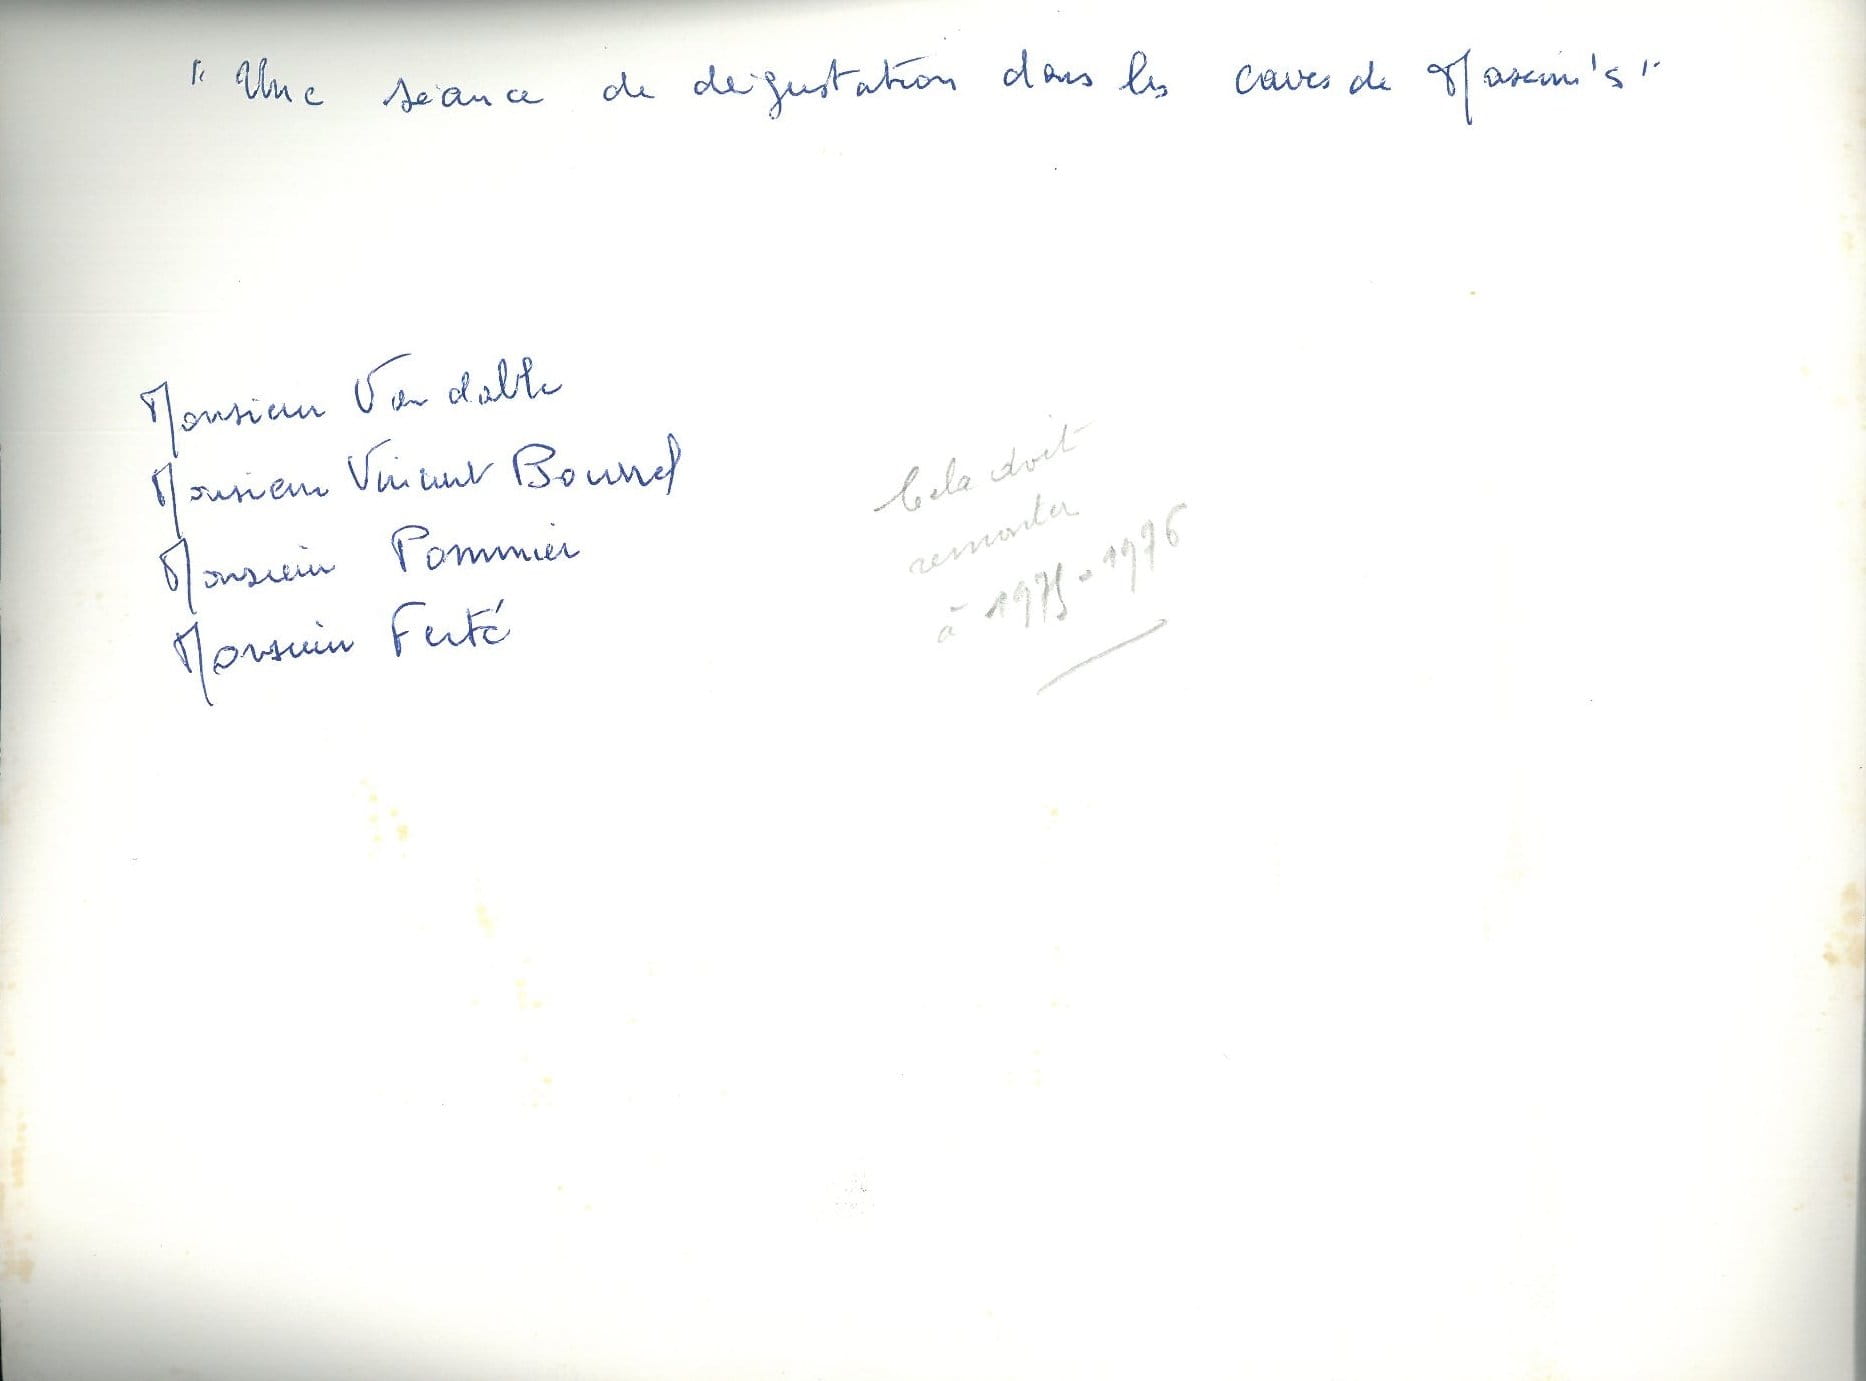 "Une séance de dégustation dans les caves de Maxim's"
Monsieur Vaudable
Monsieur Vincent Bourrel
Monsieur Pommier
Monsieur Ferté
Cela doit
remonter
à 1975-1976